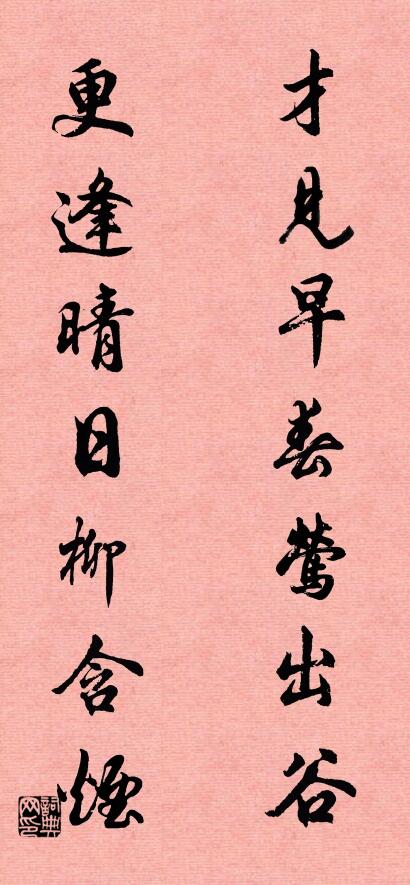 才見早春鶯出谷
更逢晴日柳含煙
詞典網印